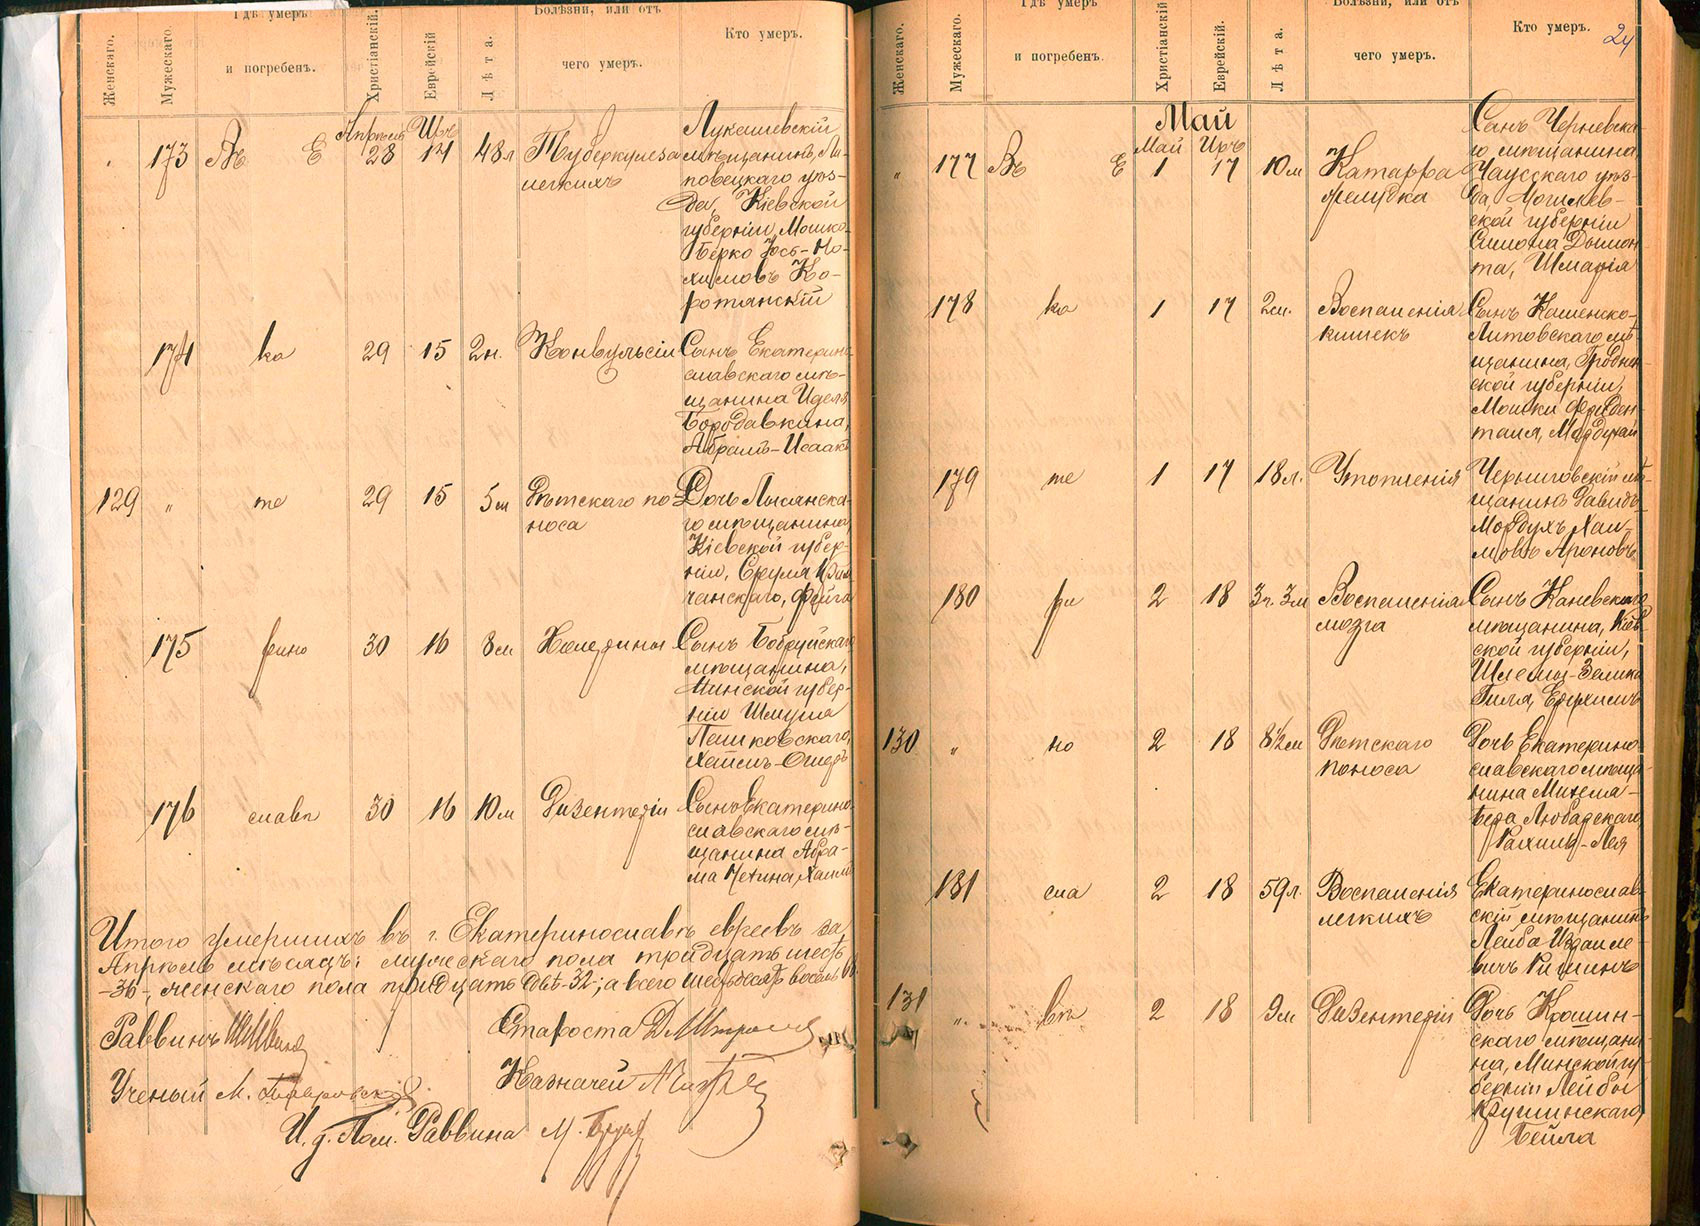 Женскаго.
Мужескаго.
Гдѣ умеръ
и погребенъ.
Христіанскій.
Еврейскій
Лѣта.
Болѣзни, или отъ
чего умеръ.
Кто умеръ.
Апрѣль Иръ
173 Въ Е 28 14 48 л Туберкулеза
легкихъ
Лукашевскій
мѣщанинъ, Ли-
повецкаго уѣз-
да, Кіевской
губерніи, Мошко-
Берко Юсь-Но-
химовъ Ко-
ротянскій
174 ка 29 15 2 н. Конвульсіи
Сынъ Екатерино-
славскаго мѣ-
щанина Иделя
Бородавкина,
Абрамъ-Исаакъ
129 „ те 29 15 5 м Дѣтскаго по
носа
Дочь Лысянска-
го мѣщанина,
Кіевской губер-
ніи, Сруля
чанскаго, Фейга
175 рино 30 16 8 м Холерины
Сынъ Бобруйскаго
мѣщанина,
Минской губер-
ніи Шмула
Пашковскаго,
Хаимъ-Ошеръ
176 славѣ 30 16 10 м Дизентеріи
Сынъ Екатерино-
славскаго мѣ-
щанина Абра-
ма Чечина, Хаимъ
Итого умершихъ въ г. Екатеринославѣ евреевъ за
Апрѣль мѣсяцъ: мужескаго пола тридцать шесть
-36-, женскаго пола тридцать два-32-; а всего шестьдесятъ восемь
Раввинъ
Староста Д.
Ученый М.
Казначей
И. д. Пом. Раввина М.
Женскаго.
Мужескаго.
Гдѣ умеръ
и погребенъ.
Христіанскій
Еврейскій.
Лѣта.
Болѣзни, или отъ
чего умеръ.
Кто умеръ.
24
Май
Май Иръ
„ 177 Въ Е 1 17 10 м Катарра
желудка
Сынъ Черневска-
го мѣщанина,
Чаусскаго уѣз-
да, Могилев-
ской губерніи
Симона Дымон-
та, Шмарія
178 ка 1 17 2 м. Воспаленія
кишекъ
Сынъ Каменско-
Литовскаго мѣ-
щанина, Гроднен-
ской губерніи,
Мошки Фриден-
таля, Мордухай
179 те 1 17 18 л. Утопленія
Черниговскій мѣ-
щанинъ Давидъ-
Мордухъ Хаи-
мовъ Ароновъ
180 ри 2 18 3 г. 3 м Воспаленія
мозга
Сынъ Каневскаго
мѣщанина, Кіев-
ской губерніи,
Шлемы-Зелика
Гиля, Ефроимъ
130 „ но 2 18 8½ м Дѣтскаго
поноса
Дочь Екатерино-
славскаго мѣща-
нина Михеля-
Бера Любарскаго,
Рахиль-Лея
181 сла 2 18 59 л. Воспаленія
легкихъ
Екатеринослав-
скій мѣщанинъ
Лейба Израиле-
вичъ
131 „ вѣ 2 18 9 м Дизентеріи
Дочь Крошин-
скаго мѣщани-
на, Минской гу-
берніи Лейбы
Крушинскаго,
Бейла